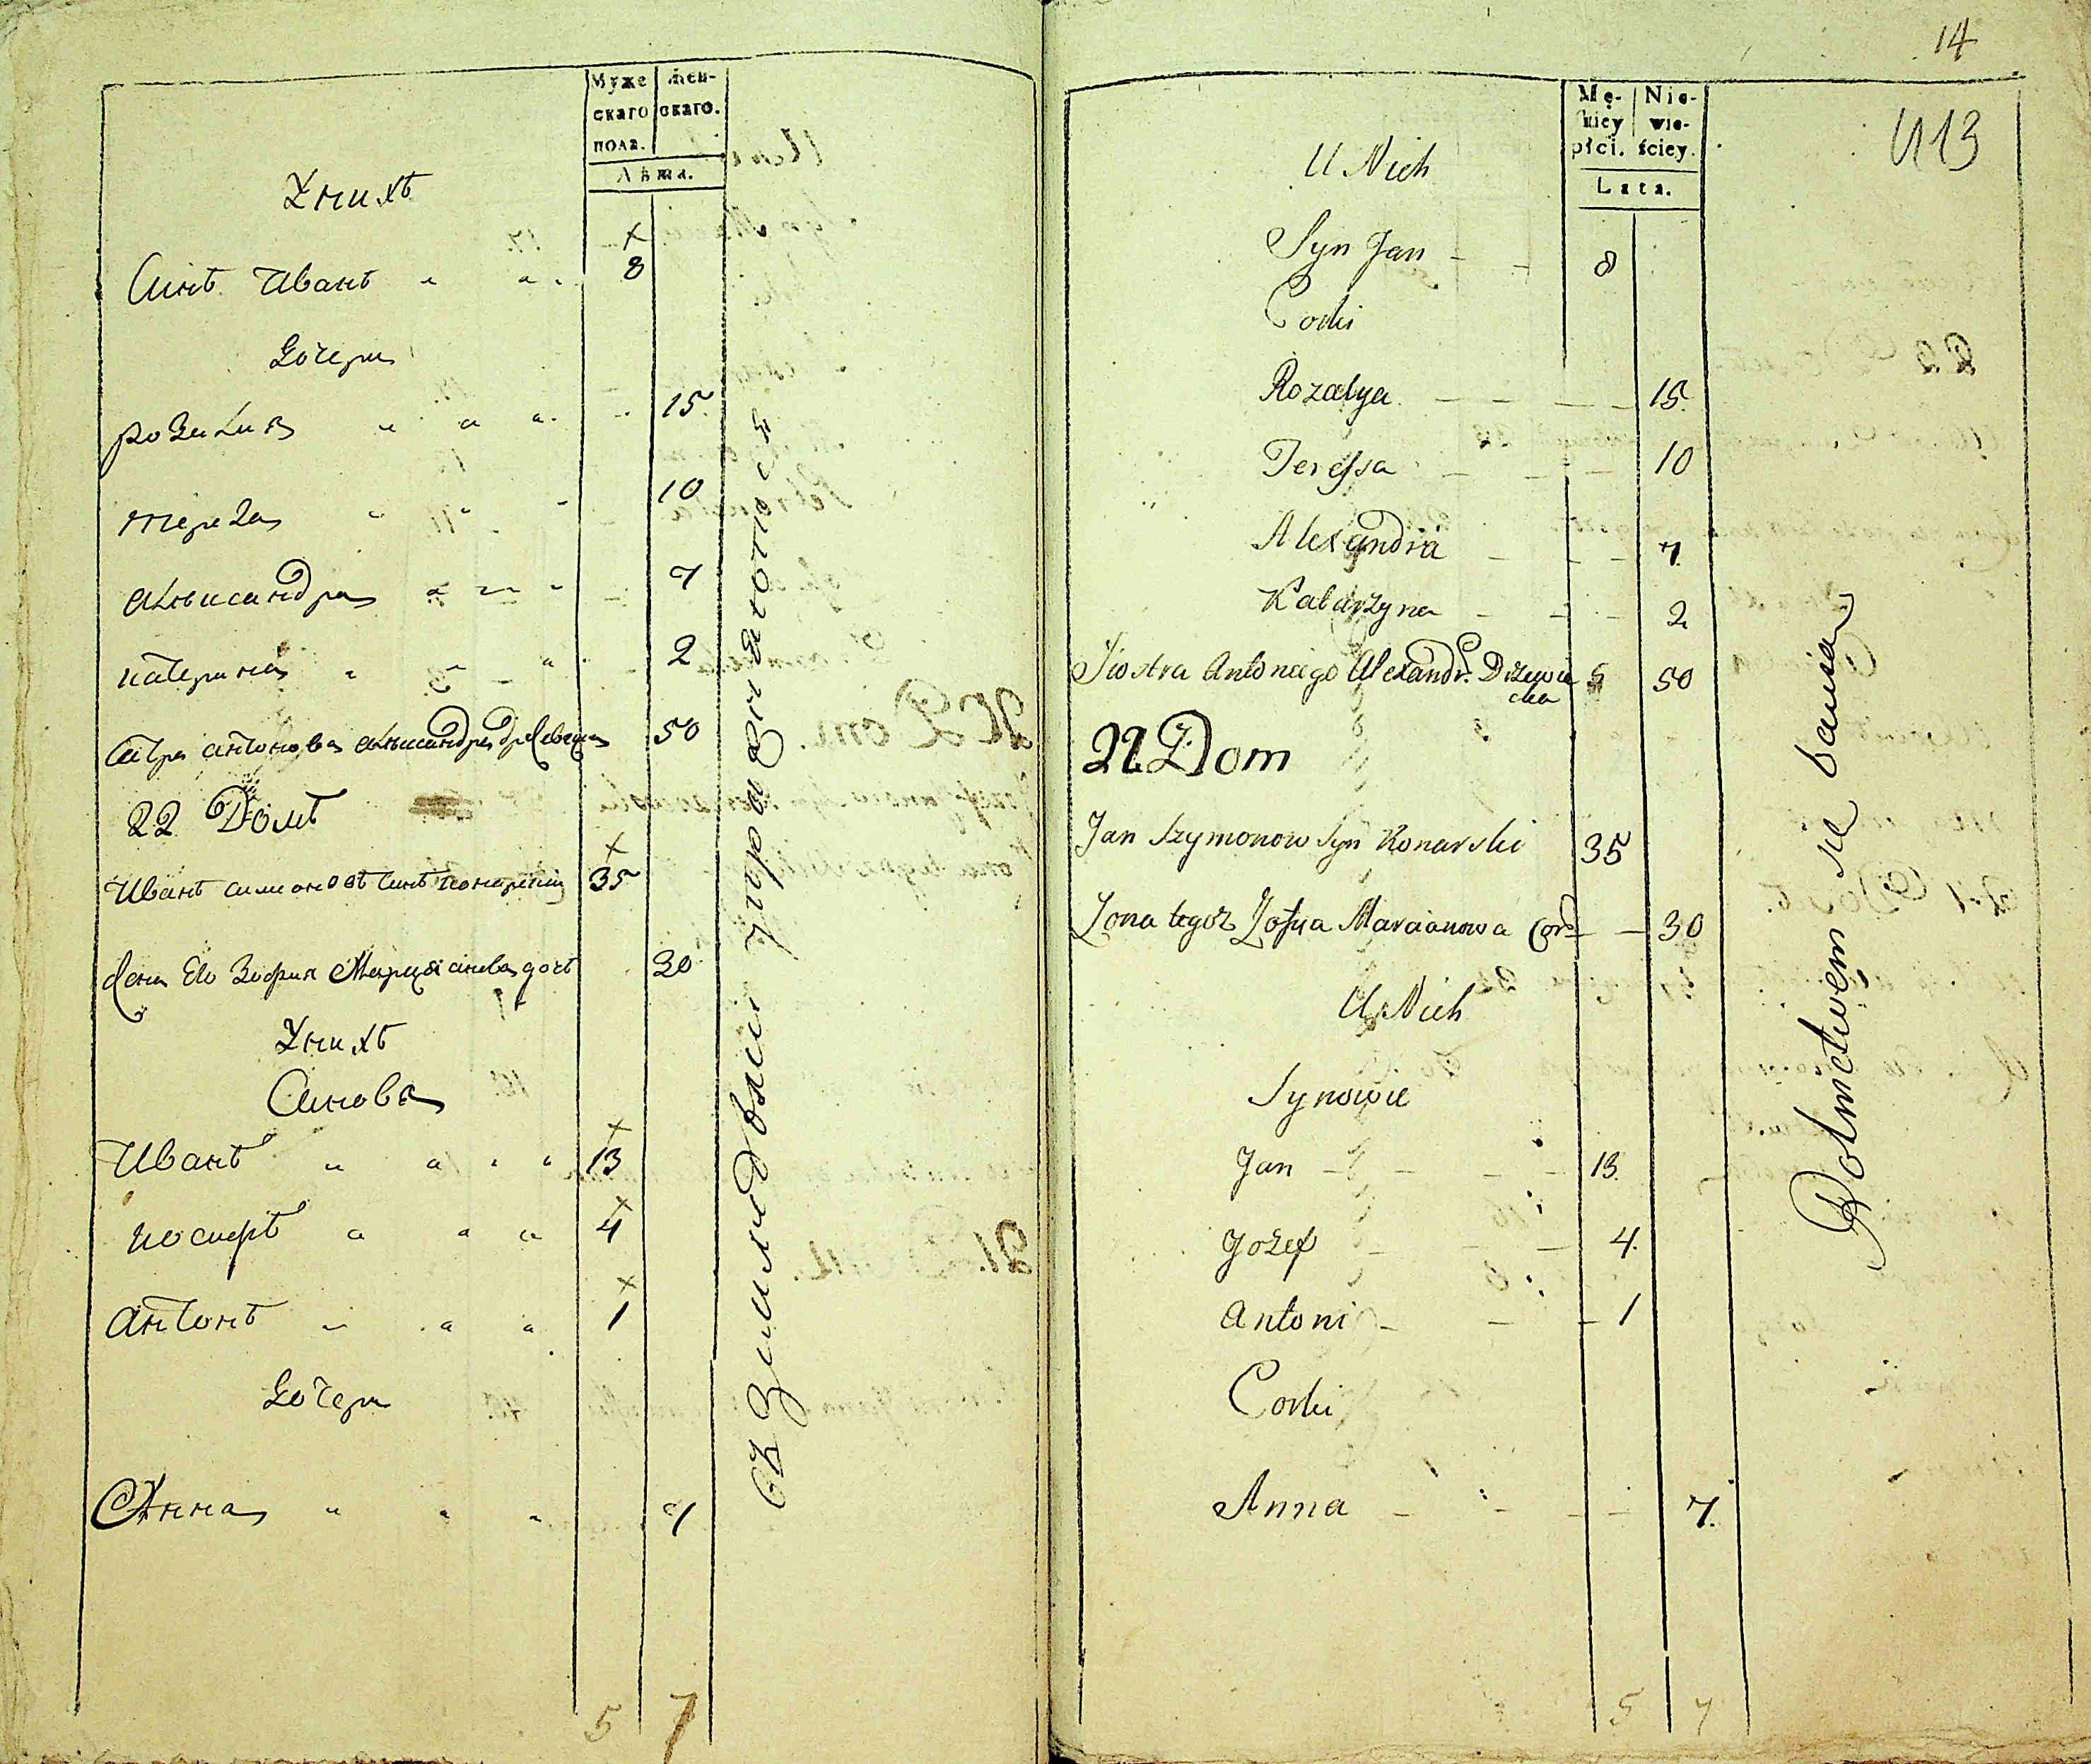 Муже скаго пола.
Жен- скаго.
Лѣта.
Унихъ
Синъ Иванъ 8
Дочери
розалия 15
тереза 10
александра 7
катерина 2
Систра антонова александра древецка 50
22 Домъ
Иванъ симоновъ синъ конарский 35
Жена Ево Зофия Марцианова дочъ 30
Унихъ
Синовя
Иванъ 13
иосифъ 4
антонъ 1
Дочери
Анна 7
5 7
въ Земледѣлии упражняются
14
Mę- zkiey płci.
Nie- wie- ściey.
Lata.
N13
U Nich
Syn Jan 8
Corki
Rozalya 15
Teressa 10
Alexandra 7
Katarzyna 2
Siostra Antoniego Alexandr. Drzewie cka 50
22 Dom
Jan Szymonow Syn Konarski 35
Zona tegoż Zofya Marcianowa Cor 30
U Nich
Synowie
Jan 13
Jozef 4
Antoni 1
Corki
Anna 7
5 7
Rolnictwem się bawią